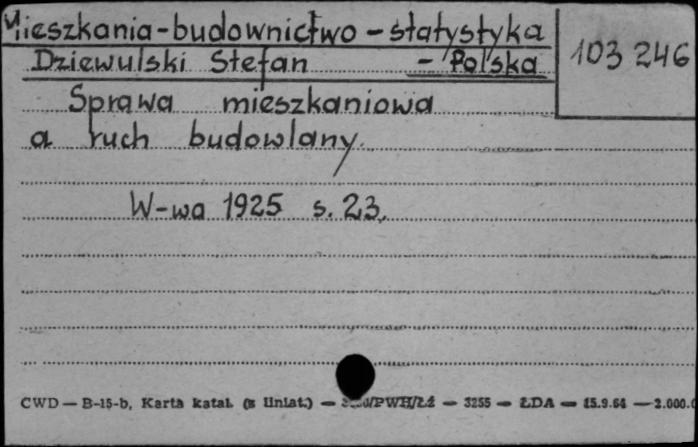 Mieszkania-budownictwo-statystyka
103 246
Dziewulski Stefan - Polska
Sprawa mieszkaniowa
a ruch budowlany.
W-wa 1925 s. 23.
CWD — B-15-b, Karta katal. (z liniat.) — /PWH/Łź — 3255 — ŁDA — 15.9.64 — 2.000.0